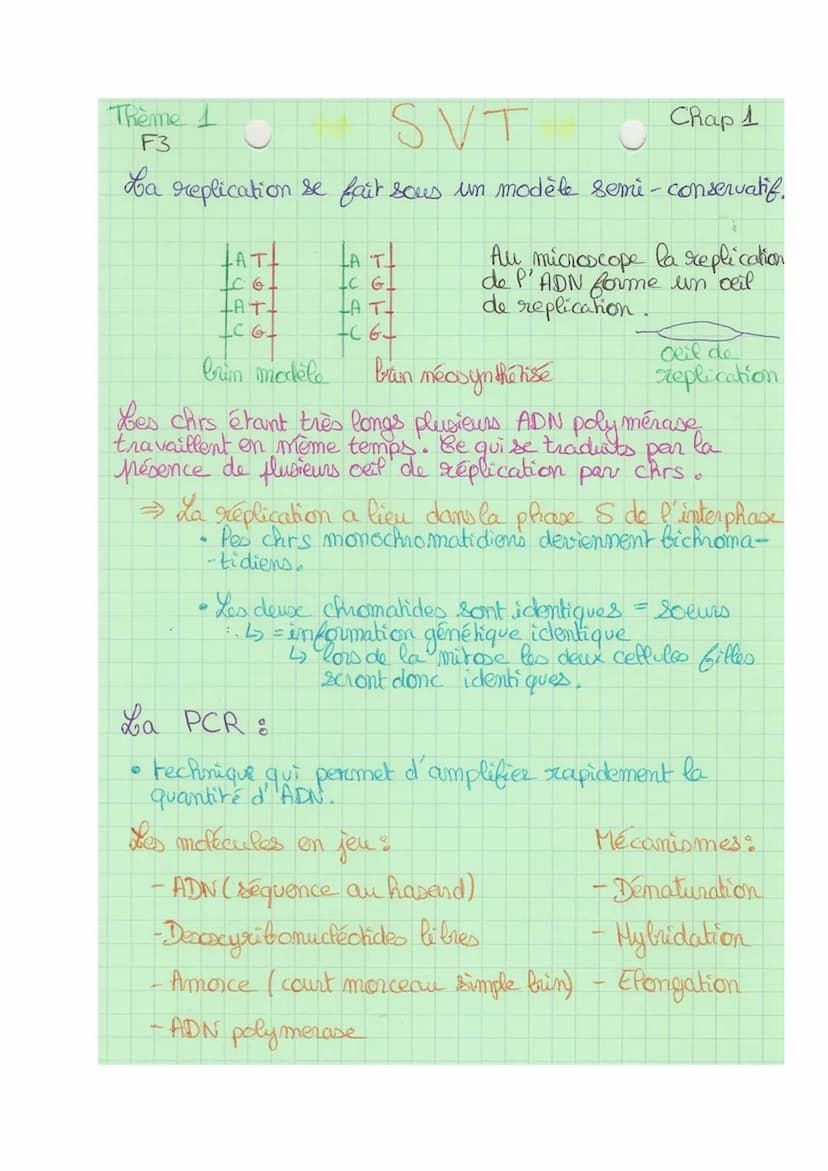 Thème 1 SVT Chap 1
F3
La replication se fait sous un modèle semi-conservatif.
A T A T
C G C G
A T A T
C G C G
brin modèle brin néosynthétisé
Au microscope la replication
de l'ADN forme un oeil
de replication.
oeil de
replication
Les chrs étant très longs plusieurs ADN polymérase
travaillent en même temps. Ce qui se traduits par la
présence de plusieurs oeil de réplication par chrs.
⇒ La réplication a lieu dans la phase S de l'interphase
• Les chrs monochromatidiens deviennent bichroma-
-tidiens.
• Les deux chromatides sont identiques = soeurs
↳ = information génétique identique
↳ lors de la mitose les deux cellules filles
seront donc identiques.
La PCR :
• technique qui permet d'amplifier rapidement la
quantité d'ADN.
Les molécules en jeu :
- ADN (séquence au hasard)
- Desoxyribonucléotides libres
- Amorce (court morceau simple brin)
- ADN polymerase
Mécanismes :
- Dématuration
- Hybridation
- Elongation